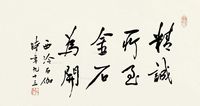 精誠
所至
金石
為開
西泠石伽
時年九十三